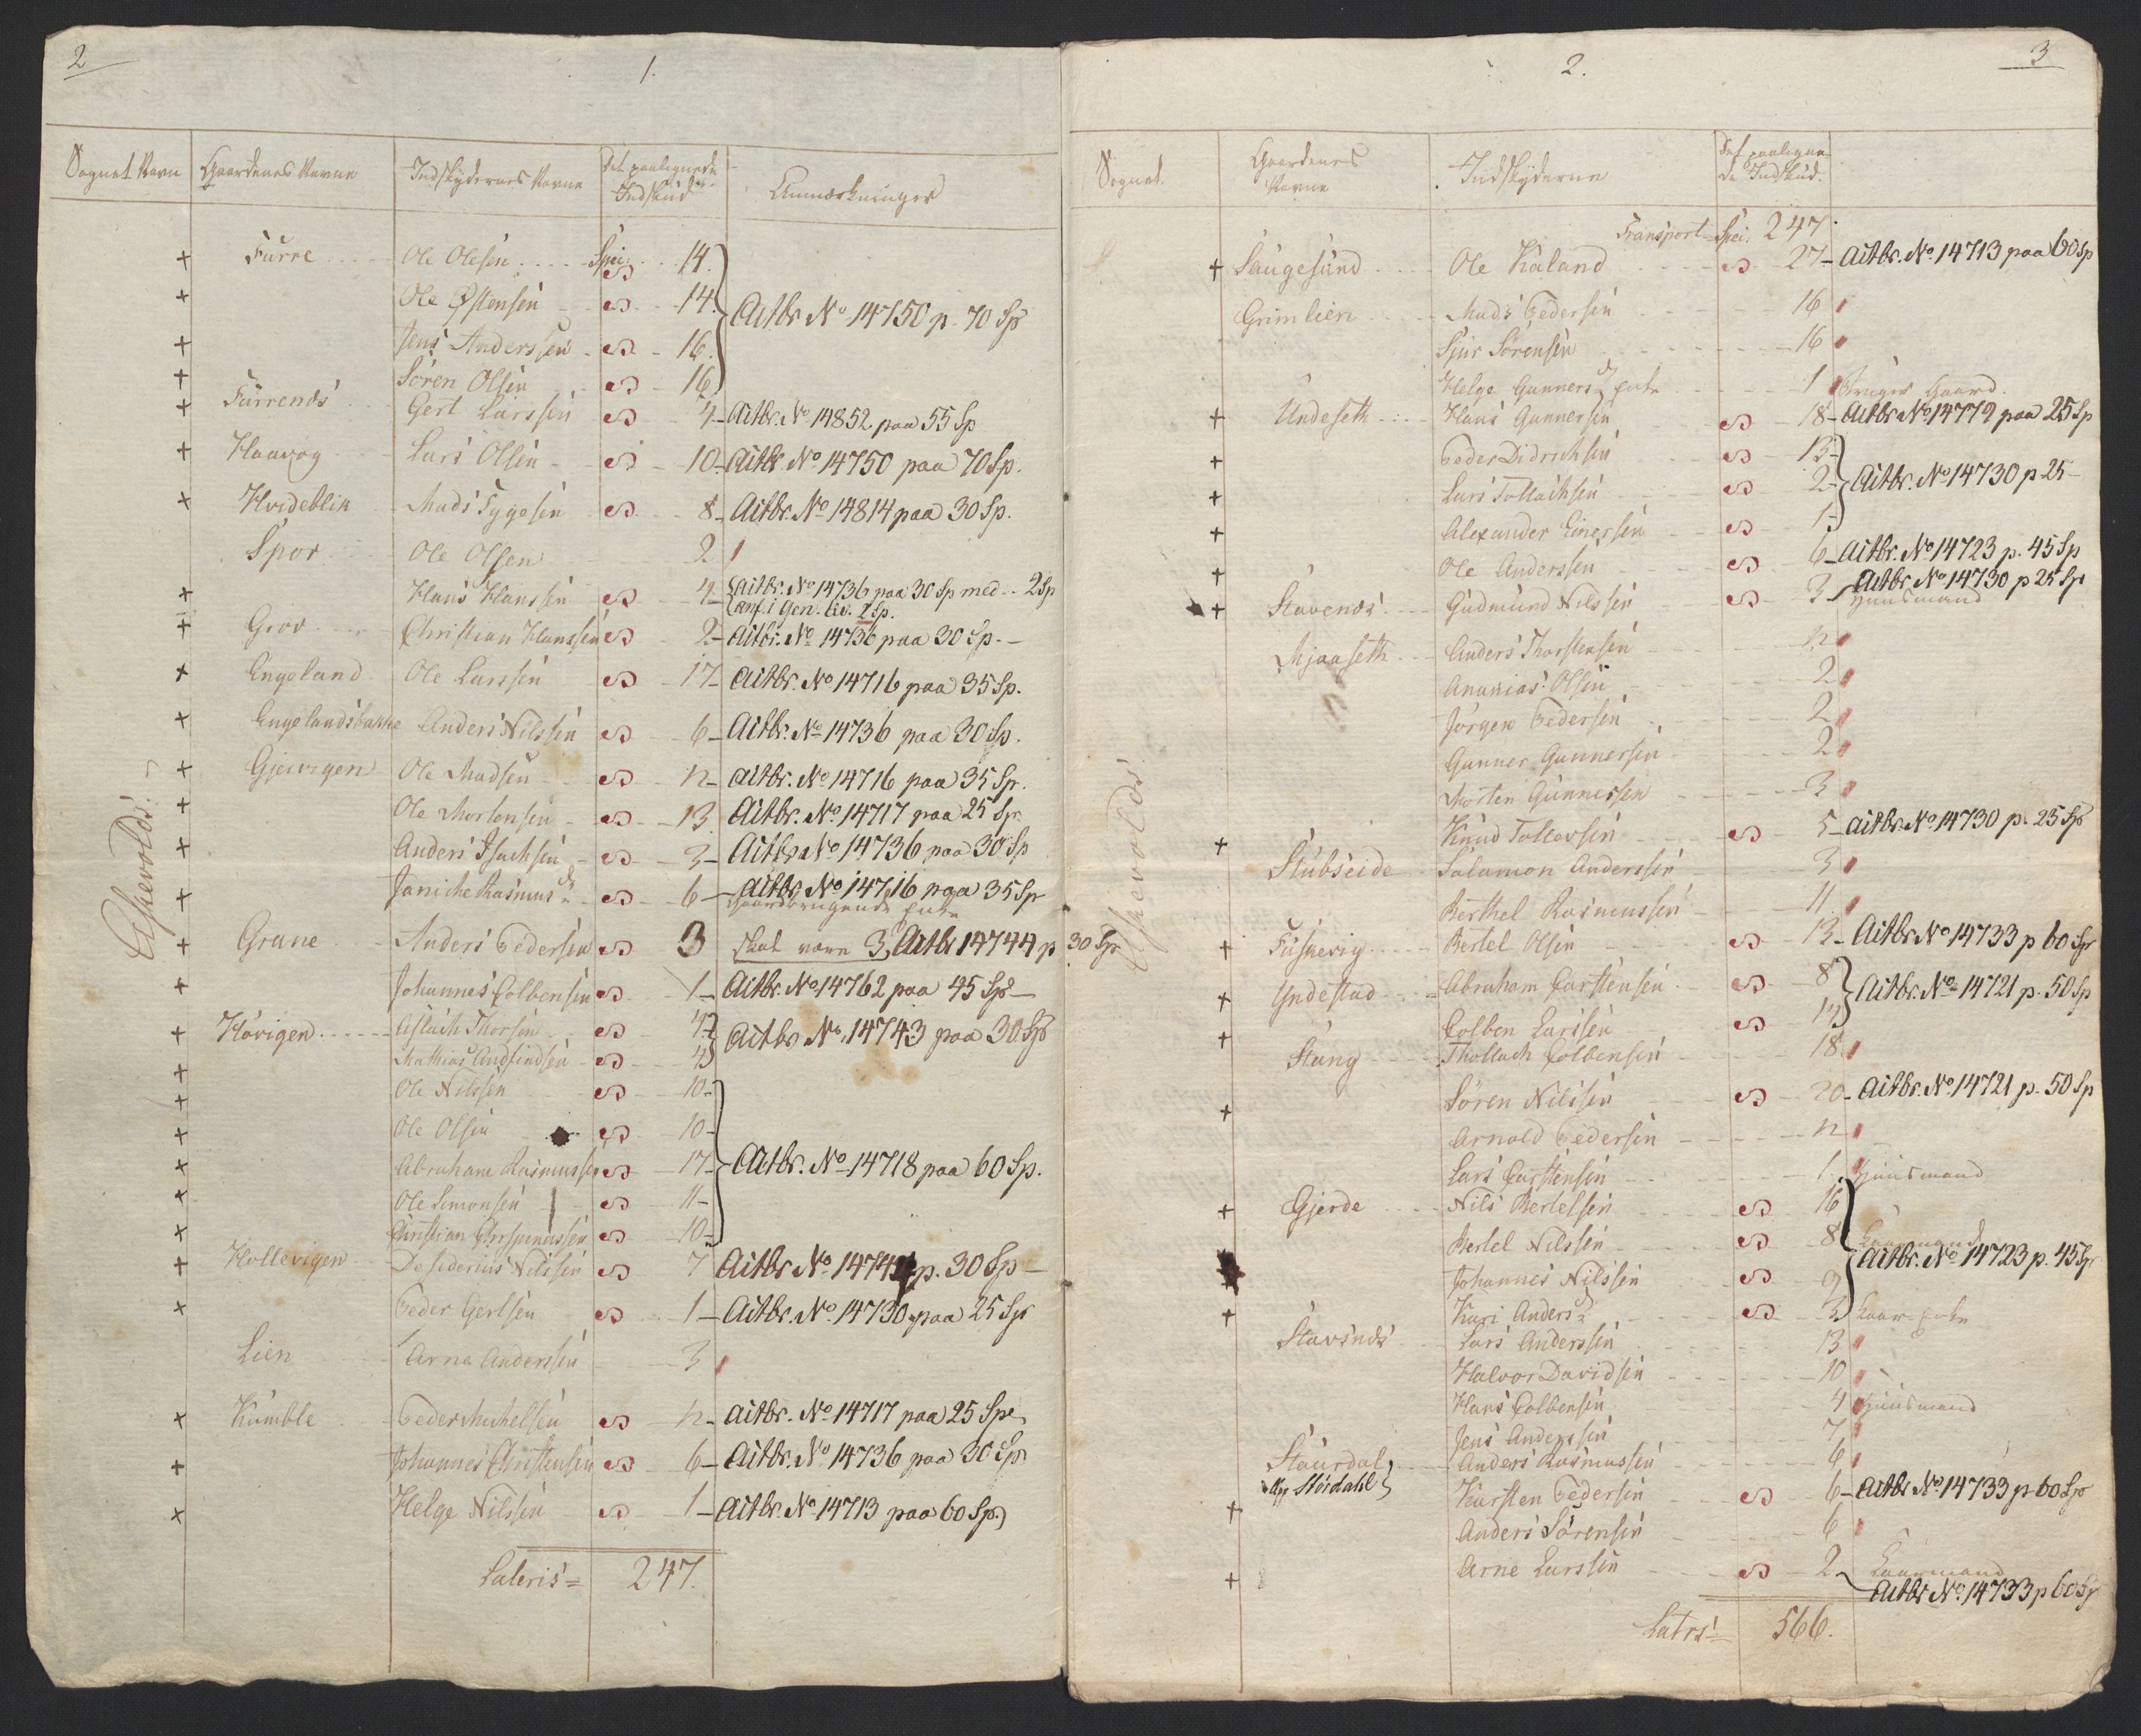 2
1.
Sognet Navn Gaardenes Navne Indskydernes Navne Det paalignede Indskud Anmærkninger
Askevolds
+ Furre Ole Olesen Spei. 14.
+ Ole Østensen 14. Actbr No 14750 p. 70 Sp
+ Jens Anderssen 16.
+ Sören Olsen 16
+ Furrenes Gert Larssen 4 Actbr. No 14852 paa 55 Sp
+ Haavog Lars Olsen 10 Actbr. No 14750 paa 70 Sp.
+ Hvideblik Mads Tygesen 8 Actbr. No 14814 paa 30 Sp.
Spor Ole Olsen 2
+ Hans Hanssen 4 Actbr. No 14736 paa 30 Sp med 2 Sp
anf. i Gen. Liv. 2 Sp.
+ Grov Christian Hanssen 2 Actbr. No 14736 paa 30 Sp.
+ Engeland Ole Larssen 17 Actbr. No 14716 paa 35 Sp.
+ Engelandsbakke Anders Nilssen 6 Actbr. No 14736 paa 30 Sp.
+ Gjervigen Ole Madsen 12 Actbr. No 14716 paa 35 Sp.
+ Ole Mortensen 13 Actbr. No 14717 paa 25 Sp.
+ Anders Isachsen 3 Actbr No 14736 paa 30 Sp
+ Janiche Rasmus dr 6 Actbr. No 14716 paa 35 Sp
Gaardbrugende Enke
+ Grane Anders Pedersen 3 skal være 3, Actbr 14744 p 30 Sp
+ Johannes Colbensen 1 Actbr. No 14762 paa 45 Sp
+ Hövigen Aslach Thorsen 4 Actbr No. 14743 paa 30 Sp
+ Mathias Andfindsen 4
+ Ole Nilssen 10
+ Ole Olsen 10
+ Abraham Rasmussen 17 Actbr. No 14718 paa 60 Sp.
+ Ole Simonsen 11
+ Christian 10
+ Hollevigen Desiderius Nilssen 7 Actbr No 14744 p. 30 Sp
+ Peder Gertsen 1 Actbr. No 14730 paa 25 Sp
Lien Arne Anderssen 3
+ Kumble Peder Michelsen 12 Actbr. No 14717 paa 25 Spe
+ Johannes Christensen 6 Actbr. No 14736 paa 30 Sp
+ Helge Nilssen 1 Actbr. No 14713 paa 60 Sp.
Lateris 247.
3
2.
Sognet. Gaardenes Navne Indskyderne Det paalignede Indskud.
Askevolds
Transport Spei. 247.
+ Saugesund Ole Kaland 27 Actbr. No 14713 paa 60 Sp
Grimlien Mads Pedersen 16
Siur Sörensen 16
Helge Gunners dr Enke 1 bruger Gaard.
+ Undeseth Hans Gunnersen 18 Actbr No 14779 paa 25 Sp
+ Peder Didrichsen 13
+ Lars Tollachsen 2 Actbr. No 14730 p 25
+ Alexander Einersen 1
+ Ole Anderssen 6 Actbr. No 14723 p. 45 Sp
+ Stavenes Gudmund Nilssen 3 Actbr No 14730 p 25 Sp
Huusmand
Mjaaseth Anders Thorstensen 12
Ananias Olsen 2
Jörgen Pedersen 2
Gunner Gunnersen 2
Morten Gunnersen 3
+ Knud Tollevsen 5 Actbr No 14730 p. 25 Sp
Stubseide Salamon Anderssen 3
Berthel Rasmussen 11
+ Fuskevig Bertel Olsen 13 Actbr No 14733 p 60 Sp
+ Yndestad Abraham Carstensen 8 Actbr. No 14721 p. 50 Sp
+ Colben Larssen 12
Stang Thollach Colbensen 18
+ Sören Nilssen 20 Actbr. No 14721 p. 50 Sp
Arnold Pedersen 12
Lars Carstensen 1 Huusmand
+ Gjerde Nils Bertelsen 16
Bertel Nilssen 8 Kaarmand
Actbr. No 14723 p. 45 Sp
Johannes Nilssen 9
+ Kari Anders dr 3 Kaar Enke
Stavsnes Lars Anderssen 13
Halvor Davidsen 10
Hans Colbensen 4 Huusmand
Jens Anderssen 7
Staurdal Anders Rasmussen 6
Stördahl
+ Karsten Pedersen 6 Actbr No 14733 p 60 Sp
Anders Sörensen 6
+ Arne Larssen 2 Kaarmand
Actbr No 14733 p 60 Sp
Latrs 566.